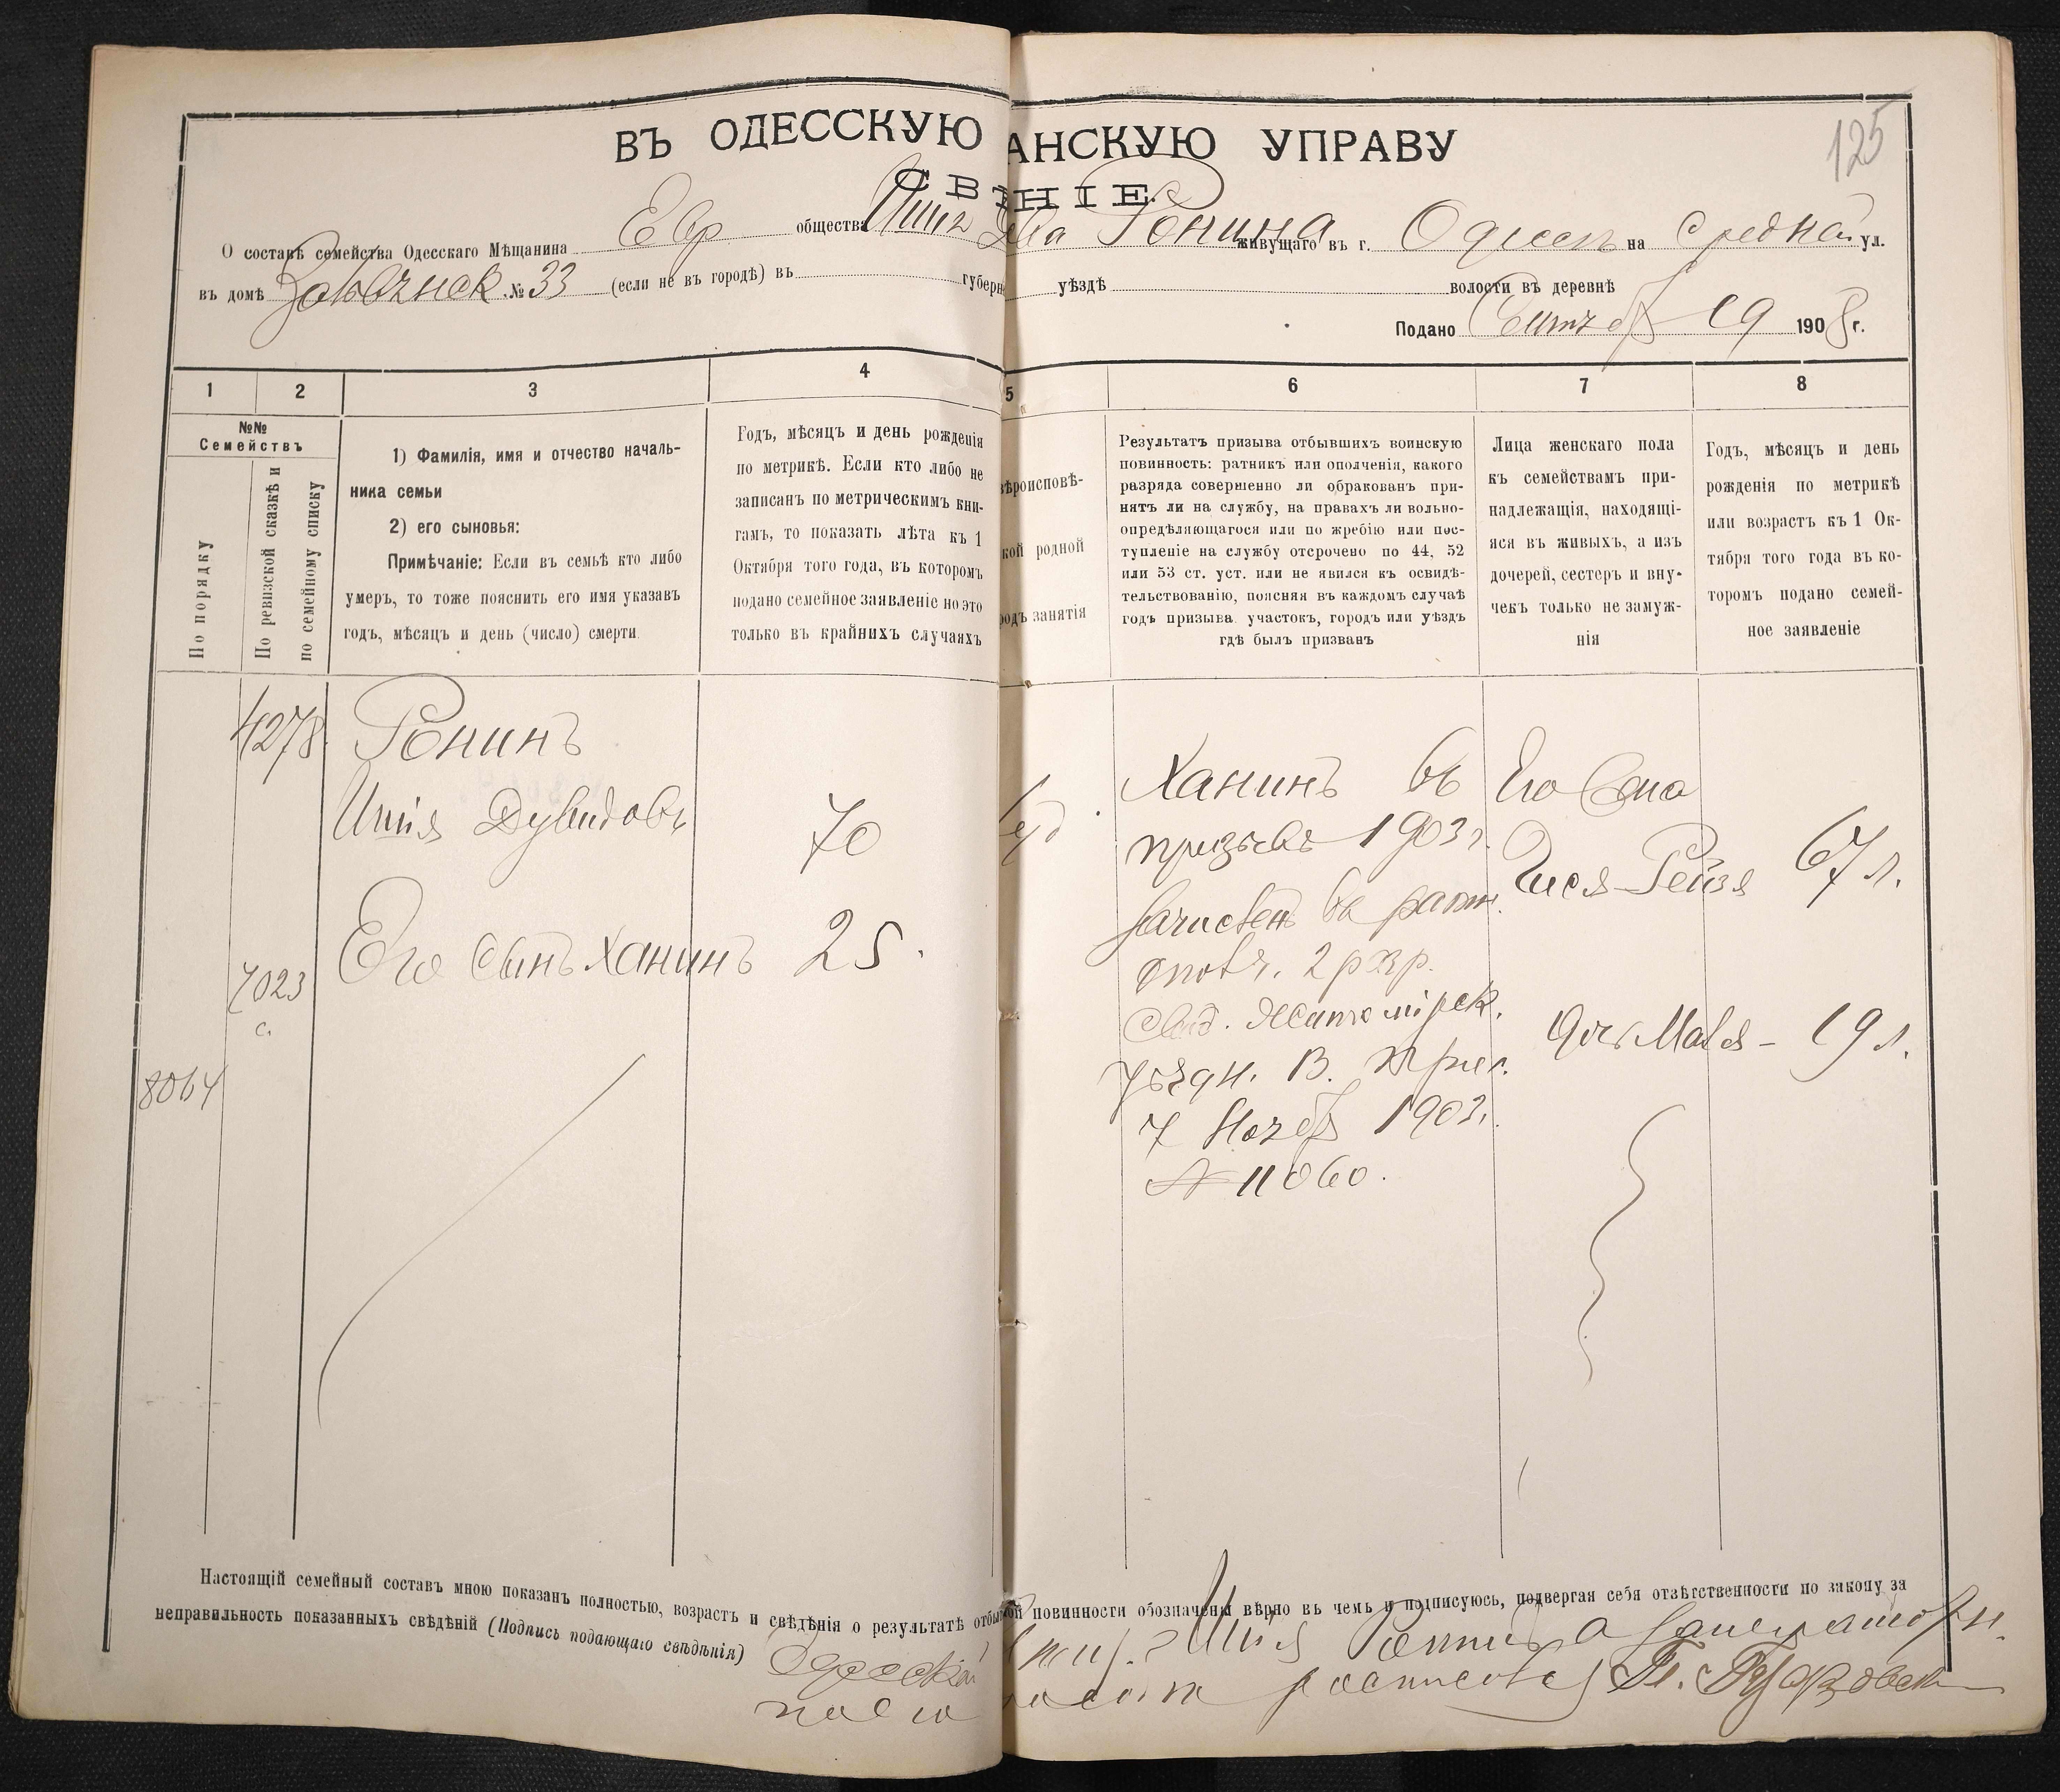 125
ВЪ ОДЕССКУЮ АНСКУЮ УПРАВУ
СВ НІЕ.
О составѣ семейства Одесскаго Мѣщанина Евр общества Ронина живущаго въ г. Одессѣ на Средной ул.
въ домѣ № 33 (если не въ городѣ) въ губерн уѣздѣ волости въ деревнѣ
Подано 19 1908 г.
1 2 3 4 5 6 7 8
№№
Семействъ
По порядку
По ревизской сказкѣ и
по семейному списку
1) Фамилія, имя и отчество началь-
ника семьи
2) его сыновья:
Примѣчаніе: Если въ семьѣ кто либо
умеръ, то тоже пояснить его имя указавъ
годъ, мѣсяцъ и день (число) смерти
Годъ, мѣсяцъ и день рожденія
по метрикѣ. Если кто либо не
записанъ по метрическимъ кни-
гамъ, то показать лѣта къ 1
Октября того года, въ которомъ
подано семейное заявленіе но это
только въ крайнихъ случаяхъ
вѣроисповѣ-
кой родной
родъ занятія
Результатъ призыва отбывшихъ воинскую
повинность: ратникъ или ополченія, какого
разряда совершенно ли обракованъ при-
нятъ ли на службу, на правахъ ли вольно-
опредѣляющагося или по жребію или пос-
тупленіе на службу отсрочено по 44, 52
или 53 ст. уст. или не явился къ освидѣ-
тельствованію, поясняя въ каждомъ случаѣ
годъ призыва участокъ, городъ или уѣздъ
гдѣ былъ призванъ
Лица женскаго пола
къ семействамъ при-
надлежащія, находящі-
яся въ живыхъ, а изъ
дочерей, сестеръ и вну-
чекъ только незамуж-
нія
Годъ, мѣсяцъ и день
рожденія по метрикѣ
или возрастъ къ 1 Ок-
тября того года въ ко-
торомъ подано семей-
ное заявленіе
4278
Ронинъ
Шия Дувидовъ 70
7023
с.
Его сынъ Ханинъ 25.
8064
Ханинъ въ
призывъ 1903г.
зачисленъ въ ратн.
ополч. 2 разр.
Свид. Житомірск.
Уѣздн. В. Прис.
7 Нояб 1903г.
№ 11060.
Его жена
Рейзя 67 л.
19 л.
Настоящій семейный составъ мною показанъ полностью, возрастъ и свѣдѣнія о результатѣ отбы ой повинности обозначены вѣрно въ чемъ и подписуюсь, подвергая себя отвѣтственности по закону за
неправильность показанныхъ свѣдѣній (Подпись подающаго свѣдѣнія)
Одесскій Шия Ронинъ а